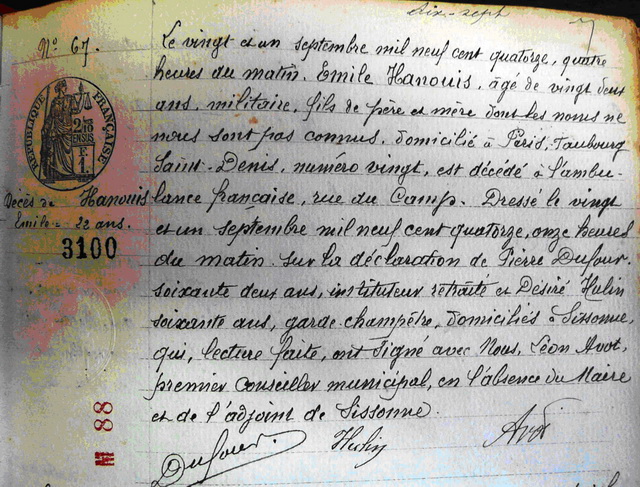 dix-sept
N° 67.
Le vingt et un septembre mil neuf cent quatorze, quatre
heures du matin, Emile Hanouis, âgé de vingt deux
ans, militaire, fils de père et mère dont les noms ne
nous sont pas connus, domicilié à Paris, Faubourg
Saint-Denis, numéro vingt, est décédé à l'ambu-
lance française, rue du Camp. Dressé le vingt
et un septembre mil neuf cent quatorze, onze heures
du matin sur la déclaration de Pierre Dufour
soixante deux ans, instituteur retraité et Désiré Hulin
soixante ans, garde champêtre, domiciliés à Sissonne,
qui, lecture faite, ont signé avec Nous, Léon Avot,
premier conseiller municipal, en l'absence du Maire
et de l'adjoint de Sissonne.
RÉPUBLIQUE FRANÇAISE
Décès de Hanouis
Emile = 22 ans.
3100
M 88
Dufour
Hulin
Avot